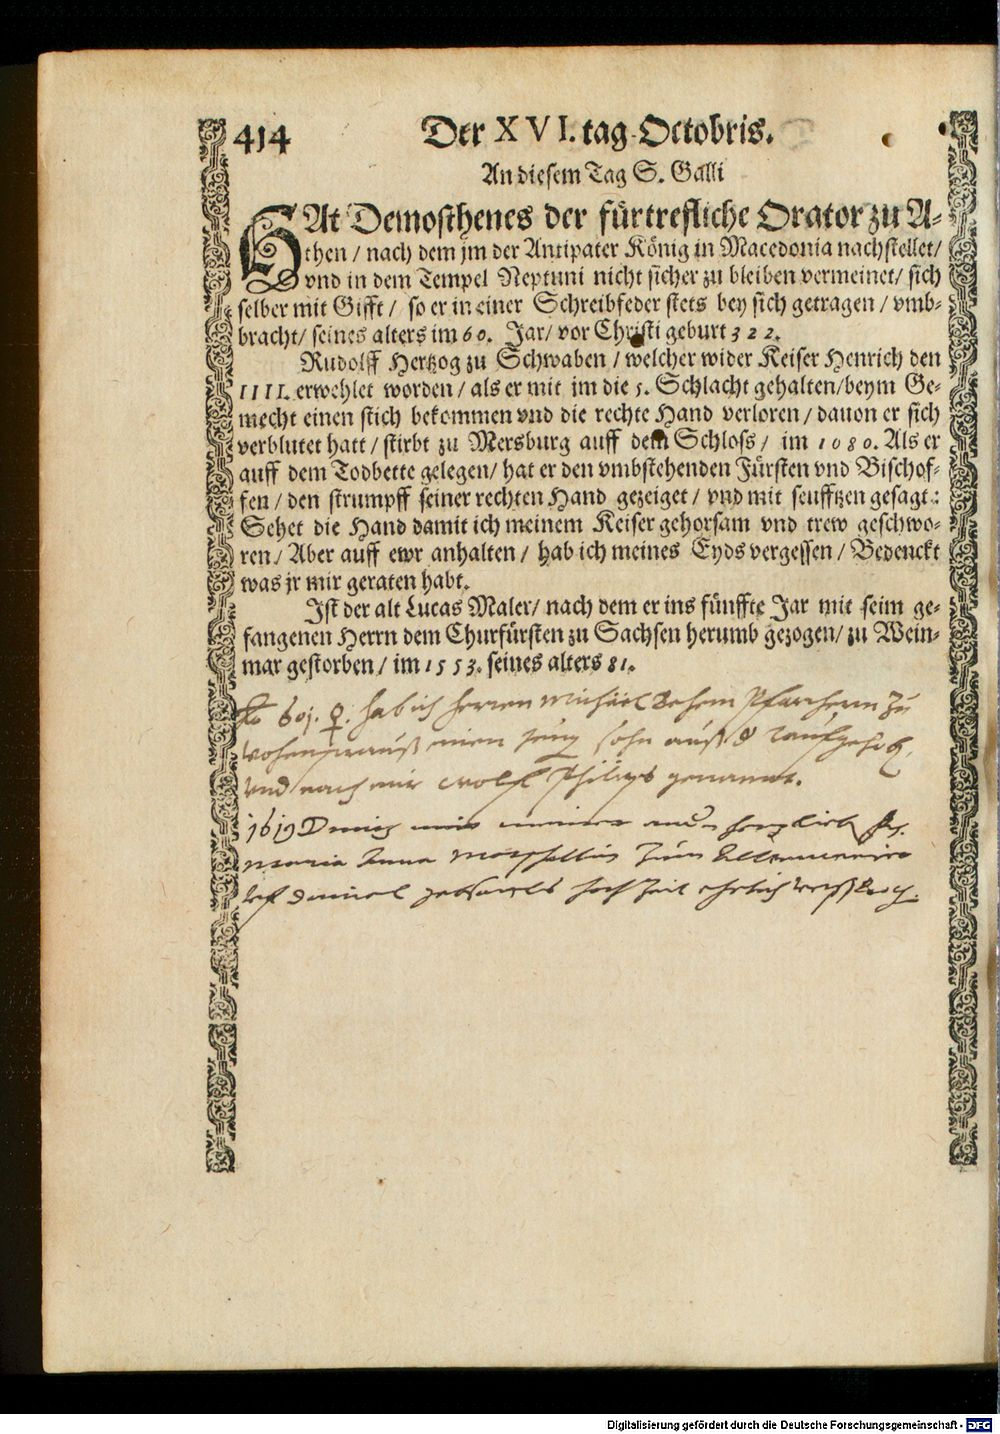 414 Der XVI. tag Octobris.
An diesem Tag S. Galli
HAt Demosthenes der fürtrefliche Orator zu A-
then / nach dem jm der Antipater König in Macedonia nachstellet /
vnd in dem Tempel Neptuni nicht sicher zu bleiben vermeinet / sich
selber mit Gifft / so er in einer Schreibfeder stets bey sich getragen / vmb-
bracht / seines alters im 60. Jar / vor Christi geburt 322.
Rudolff Hertzog zu Schwaben / welcher wider Keiser Henrich den
IIII. erwehlet worden / als er mit jm die 5. Schlacht gehalten / beym Ge-
mecht einen stich bekommen vnd die rechte Hand verloren / dauon er sich
verblutet hatt / stirbt zu Mersburg auff dem Schloss / im 1080. Als er
auff dem Todbette gelegen / hat er den vmbstehenden Fürsten vnd Bischof-
fen / den strumpff seiner rechten Hand gezeiget / vnd mit seufftzen gesagt:
Sehet die Hand damit ich meinem Keiser gehorsam vnd trew geschwo-
ren / Aber auff ewr anhalten / hab ich meines Eyds vergessen / Bedenckt
was jr mir geraten habt.
Ist der alt Lucas Maler / nach dem er ins fünffte Jar mit seim ge-
fangenen Herrn dem Churfürsten zu Sachsen herumb gezogen / zu Wein-
mar gestorben / im 1553. seines alters 81.
601. ♀. hab ich herren Michael Pfarrherrn zu
einen Jung sohn auß d
vnd nach mir Wolff Philips genannt.
1619
Maria Anna zum
Daniel hochzeit ehrlich
Digitalisierung gefördert durch die Deutsche Forschungsgemeinschaft - DFG